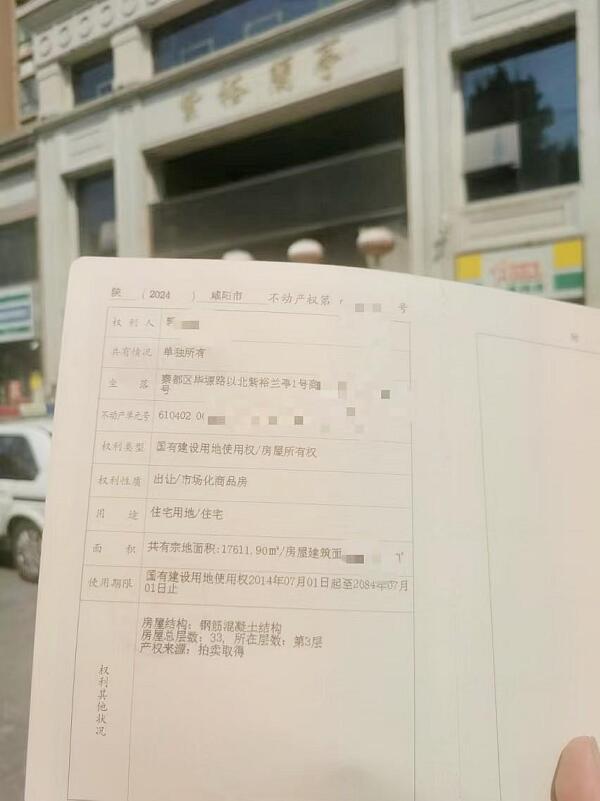 紫裕蘭亭
陕 ( 2024 ) 咸阳市 不动产权第 号
权利人
共有情况 单独所有
坐落 秦都区毕塬路以北紫裕兰亭1号商
号
不动产单元号 610402 00
权利类型 国有建设用地使用权/房屋所有权
权利性质 出让/市场化商品房
用途 住宅用地/住宅
面积 共有宗地面积:17611.90㎡/房屋建筑面
使用期限 国有建设用地使用权2014年07月01日起至2084年07月
01日止
权利其他状况
房屋结构: 钢筋混凝土结构
房屋总层数: 33, 所在层数: 第3层
产权来源: 拍卖取得